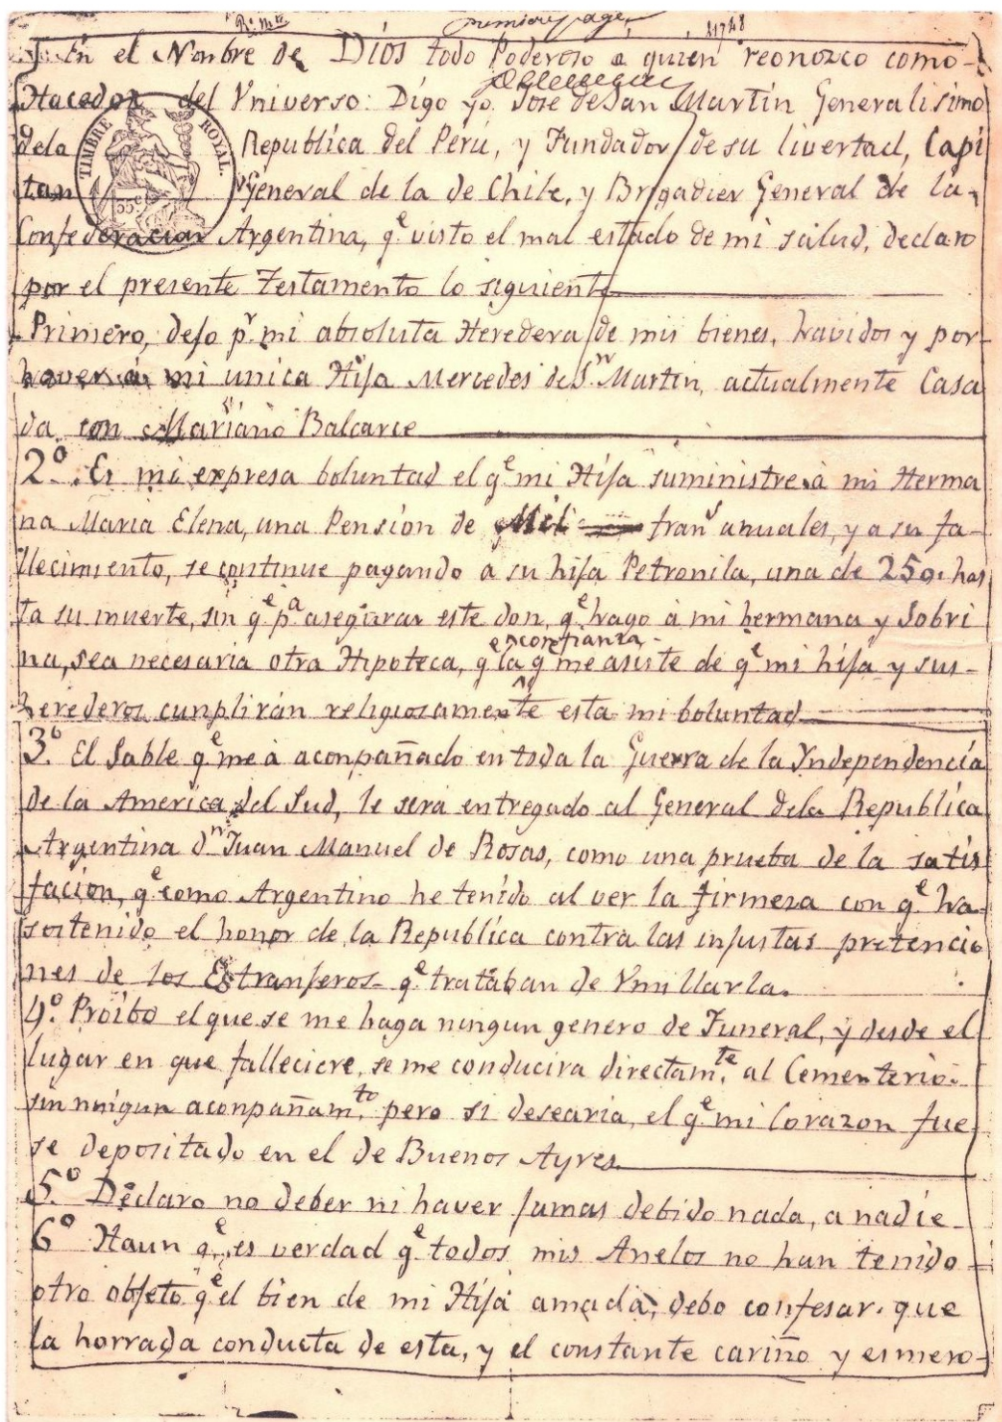 R. mo premiere page, 41748
En el Nonbre de Díos todo Poderoso a quien reonozco como
Hacedor del Vniverso: Dígo yo. José de San Martín Generalisimo
TIMBRE ROYAL.
dela Republica del Perú, y Fundador de su livertad, Capi
tan General de la de Chile, y Brigadier General de la
Confederacion Argentina, qe. visto el mal estado de mi salud, declaro
por el presente Testamento lo siguiente
Primero, dejo pr. mi absoluta Heredera de mis bienes, havidos y por
haver á mi unica Hija Mercedes de Sn. Martin, actualmente Casa
da con Mariano Balcarce
2o. Es mi expresa boluntad el qe. mi Hija suministre á mi Herma
na Maria Elena, una Pension de Mil frans anuales, y a su fa-
llecimiento, se continue pagando a su hija Petronila, una de 250. has
ta su muerte, sin qe. pa. asegurar este don, qe. hago á mi hermana y Sobri
confianza
na, sea necesaria otra Hipoteca, q la q me asiste de qe. mi hija y sus-
herederos cunplirán religiosamente esta mi boluntad
3o. El Sable qe. me á aconpañado en toda la Guerra de la Yndependencia
de la America del Sud, le será entregado al General dela Republica
Argentina dn. Juan Manuel de Rosas, como una prueba de la satis
facion, qe. como Argentino he tenido al ver la firmeza con qe. ha
sostenido el honor de la Republica contra las injustas pretencio
nes de los Estranjeros qe. trataban de Vmillarla.
4o. Proibo el que se me haga ningun genero de Funeral, y desde el
lugar en que falleciere, se me conducira directamte. al Cementerio
sin ningun aconpañamto. pero si desearia, el qe. mi Corazon fue
se depositado en el de Buenos Ayres
5o. Declaro no deber ni haver jamas debido nada, a nadie
6o Haun qe. es verdad qe. todos mis Anelos no han tenido
otro objeto qe. el bien de mi Hija amada, debo confesar. que
la horrada conducta de esta, y el constante cariño y esmero